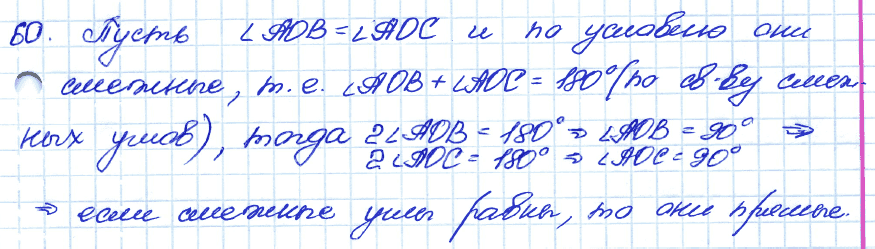 60. Пусть ∠AOB = ∠AOC и по условию они
смежные, т.е. ∠AOB + ∠AOC = 180° (по св-ву смеж-
ных углов), тогда 2∠AOB = 180° ⇒ ∠AOB = 90° ⇒
2∠AOC = 180° ⇒ ∠AOC = 90°
⇒ если смежные углы равны, то они прямые.